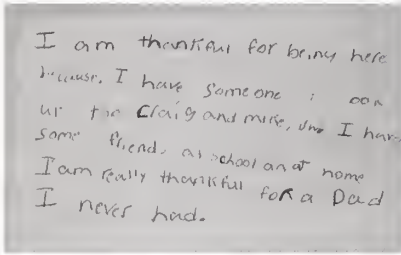 I am thankful for being here
because. I have someone i oon
up too Craig and mike, and I have
some friends at school an at home
I am really thankful for a Dad
I never had.